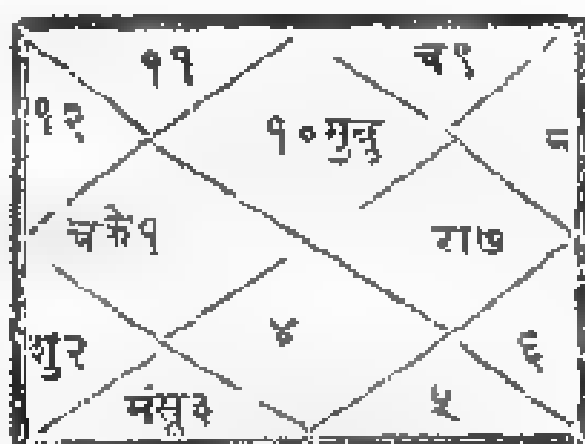 ११
च९
१२
१०मुबु
८
चके१
रा७
शु२
४
६
मंसू३
५